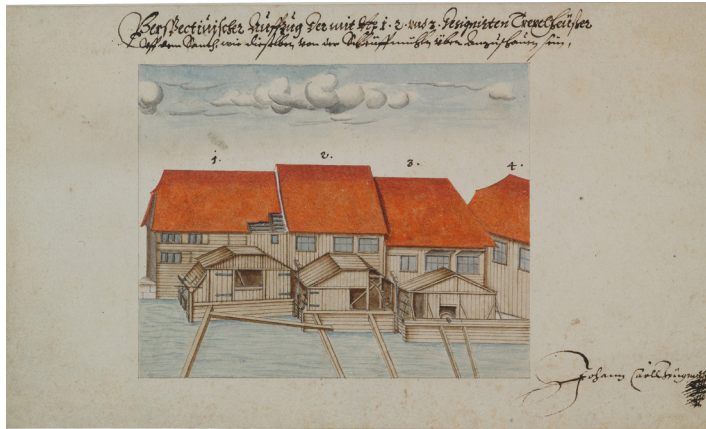 Perspectivischer Auffzug der mit No 1. 2. und 3. designirten Trexelheüßer
Auff dem Sandt, wie dieselben von der Schleüffmühlen über anzuschauen sein,
1.
2.
3.
4.
Johann Carll